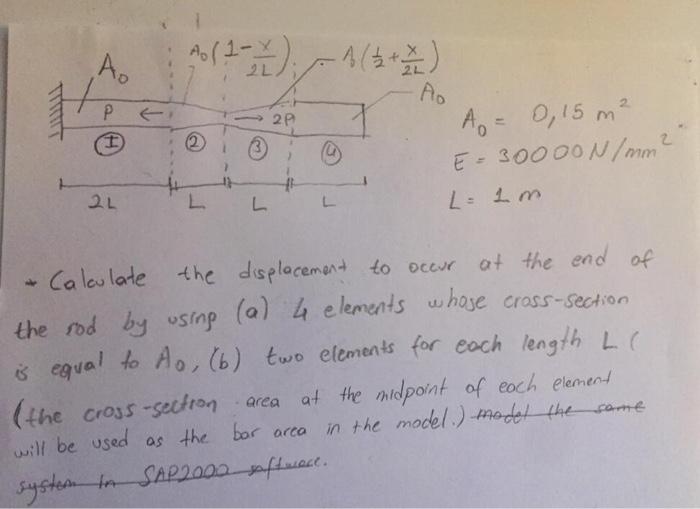 A₀ A₀(1-x/2L) A(1/2+x/2L)
A₀
P ← → 2P
I 2 3 4
2L L L L
A₀ = 0,15 m²
E = 30000 N/mm²
L = 1 m
* Calculate the displacement to occur at the end of
the rod by using (a) 4 elements whose cross-section
is equal to A₀, (b) two elements for each length L (
(the cross-section area at the midpoint of each element
will be used as the bar area in the model.) model the same
system in SAP2000 software.